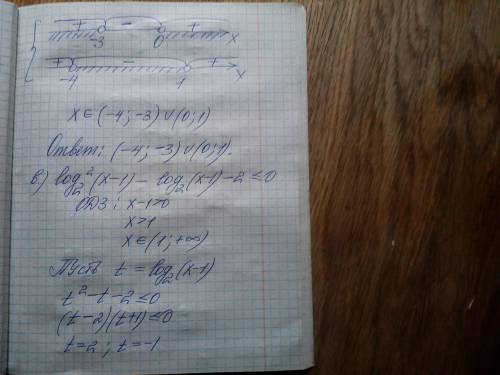 + - +
-3 0 x
+ - +
-4 1 x
x ∈ (-4; -3) ∪ (0; 1)
Ответ: (-4; -3) ∪ (0; 1).
в) log₂² (x-1) - log₂ (x-1) - 2 ≤ 0
ОДЗ: x-1>0
x>1
x ∈ (1; +∞)
Пусть t = log₂(x-1)
t² - t - 2 ≤ 0
(t-2)(t+1) ≤ 0
t=2; t=-1